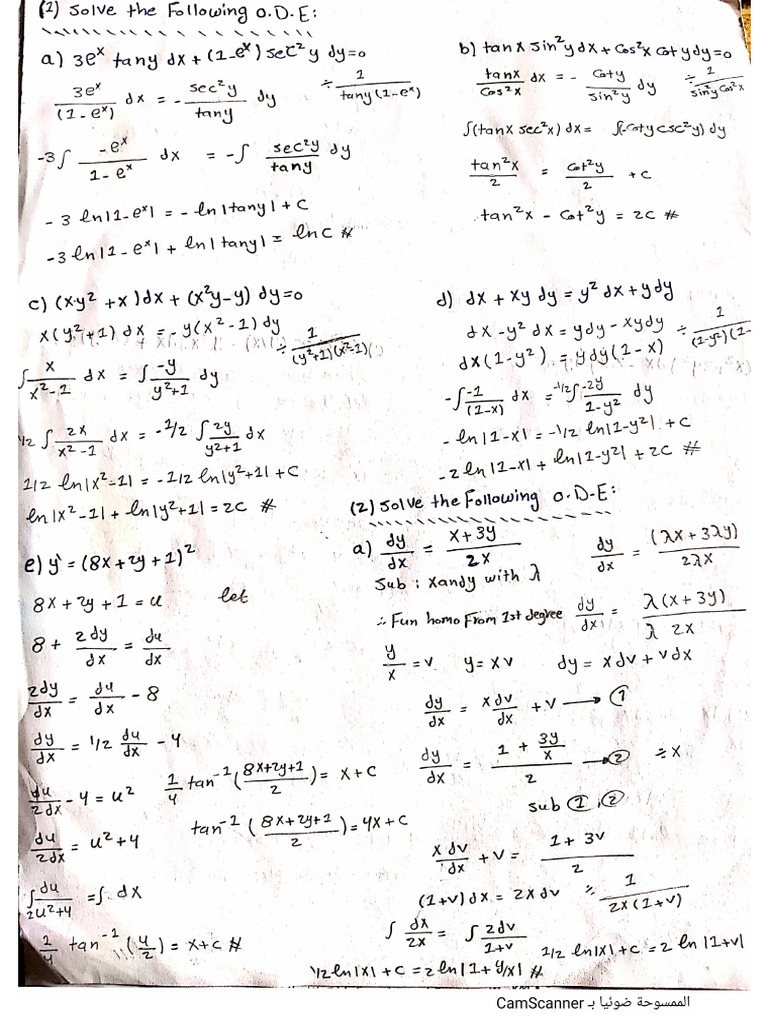 (1) Solve the Following O.D.E:
a) 3e^x tany dx + (1-e^x) sec²y dy=0
3e^x/(1-e^x) dx = - sec²y/tany dy ÷ 1/tany(1-e^x)
-3∫ -e^x/1-e^x dx = -∫ sec²y/tany dy
-3 ln|1-e^x| = -ln|tany| + C
-3 ln|1-e^x| + ln|tany| = lnC #
b) tanx sin²y dx + Cos²x Coty dy=0
tanx/Cos²x dx = - Coty/sin²y dy ÷ 1/sin²y Cos²x
∫(tanx sec²x) dx = ∫(-Coty csc²y) dy
tan²x/2 = Cot²y/2 + C
tan²x - Cot²y = 2C #
c) (x·y² + x) dx + (x²y-y) dy=0
x(y²+1) dx = -y(x²-1) dy
÷ 1/(y²+1)(x²-1)
∫ x/x²-1 dx = ∫ -y/y²+1 dy
1/2 ∫ 2x/x²-1 dx = -1/2 ∫ 2y/y²+1 dx
1/2 ln|x²-1| = -1/2 ln|y²+1| + C
ln|x²-1| + ln|y²+1| = 2C #
d) dx + xy dy = y² dx + y dy
dx - y² dx = y dy - xy dy ÷ 1/(1-y²)(1-
dx(1-y²) = y dy(1-x)
-∫ -1/(1-x) dx = -1/2 ∫ -2y/1-y² dy
-ln|1-x| = -1/2 ln|1-y²| + C
-2 ln|1-x| + ln|1-y²| + 2C #
e) y' = (8x+2y+1)²
8x+2y+1 = u let
8 + 2dy/dx = du/dx
2dy/dx = du/dx - 8
dy/dx = 1/2 du/dx - 4
du/2dx - 4 = u²
du/2dx = u²+4
∫ du/2u²+4 = ∫ dx
1/4 tan⁻¹(u/2) = x+C #
1/4 tan⁻¹(8x+2y+1/2) = x+C
tan⁻¹(8x+2y+1/2) = 4x+C
(2) Solve the Following O.D.E:
a) dy/dx = x+3y/2x dy/dx = (λx+3λy)/2λx
Sub: x and y with λ
∴ Fun homo From 1st degree dy/dx = λ(x+3y)/λ 2x
y/x = v y = xv dy = x dv + v dx
dy/dx = x dv/dx + v → ①
dy/dx = 1 + 3y/x/2 → ② ÷x
sub ①, ②
x dv/dx + v = 1+3v/2
(1+v) dx = 2x dv ÷ 1/2x(1+v)
∫ dx/2x = ∫ 2dv/1+v 1/2 ln|x|+C = 2 ln|1+v|
1/2 ln|x| + C = 2 ln|1+y/x| #
الممسوحة ضوئيا بـ CamScanner